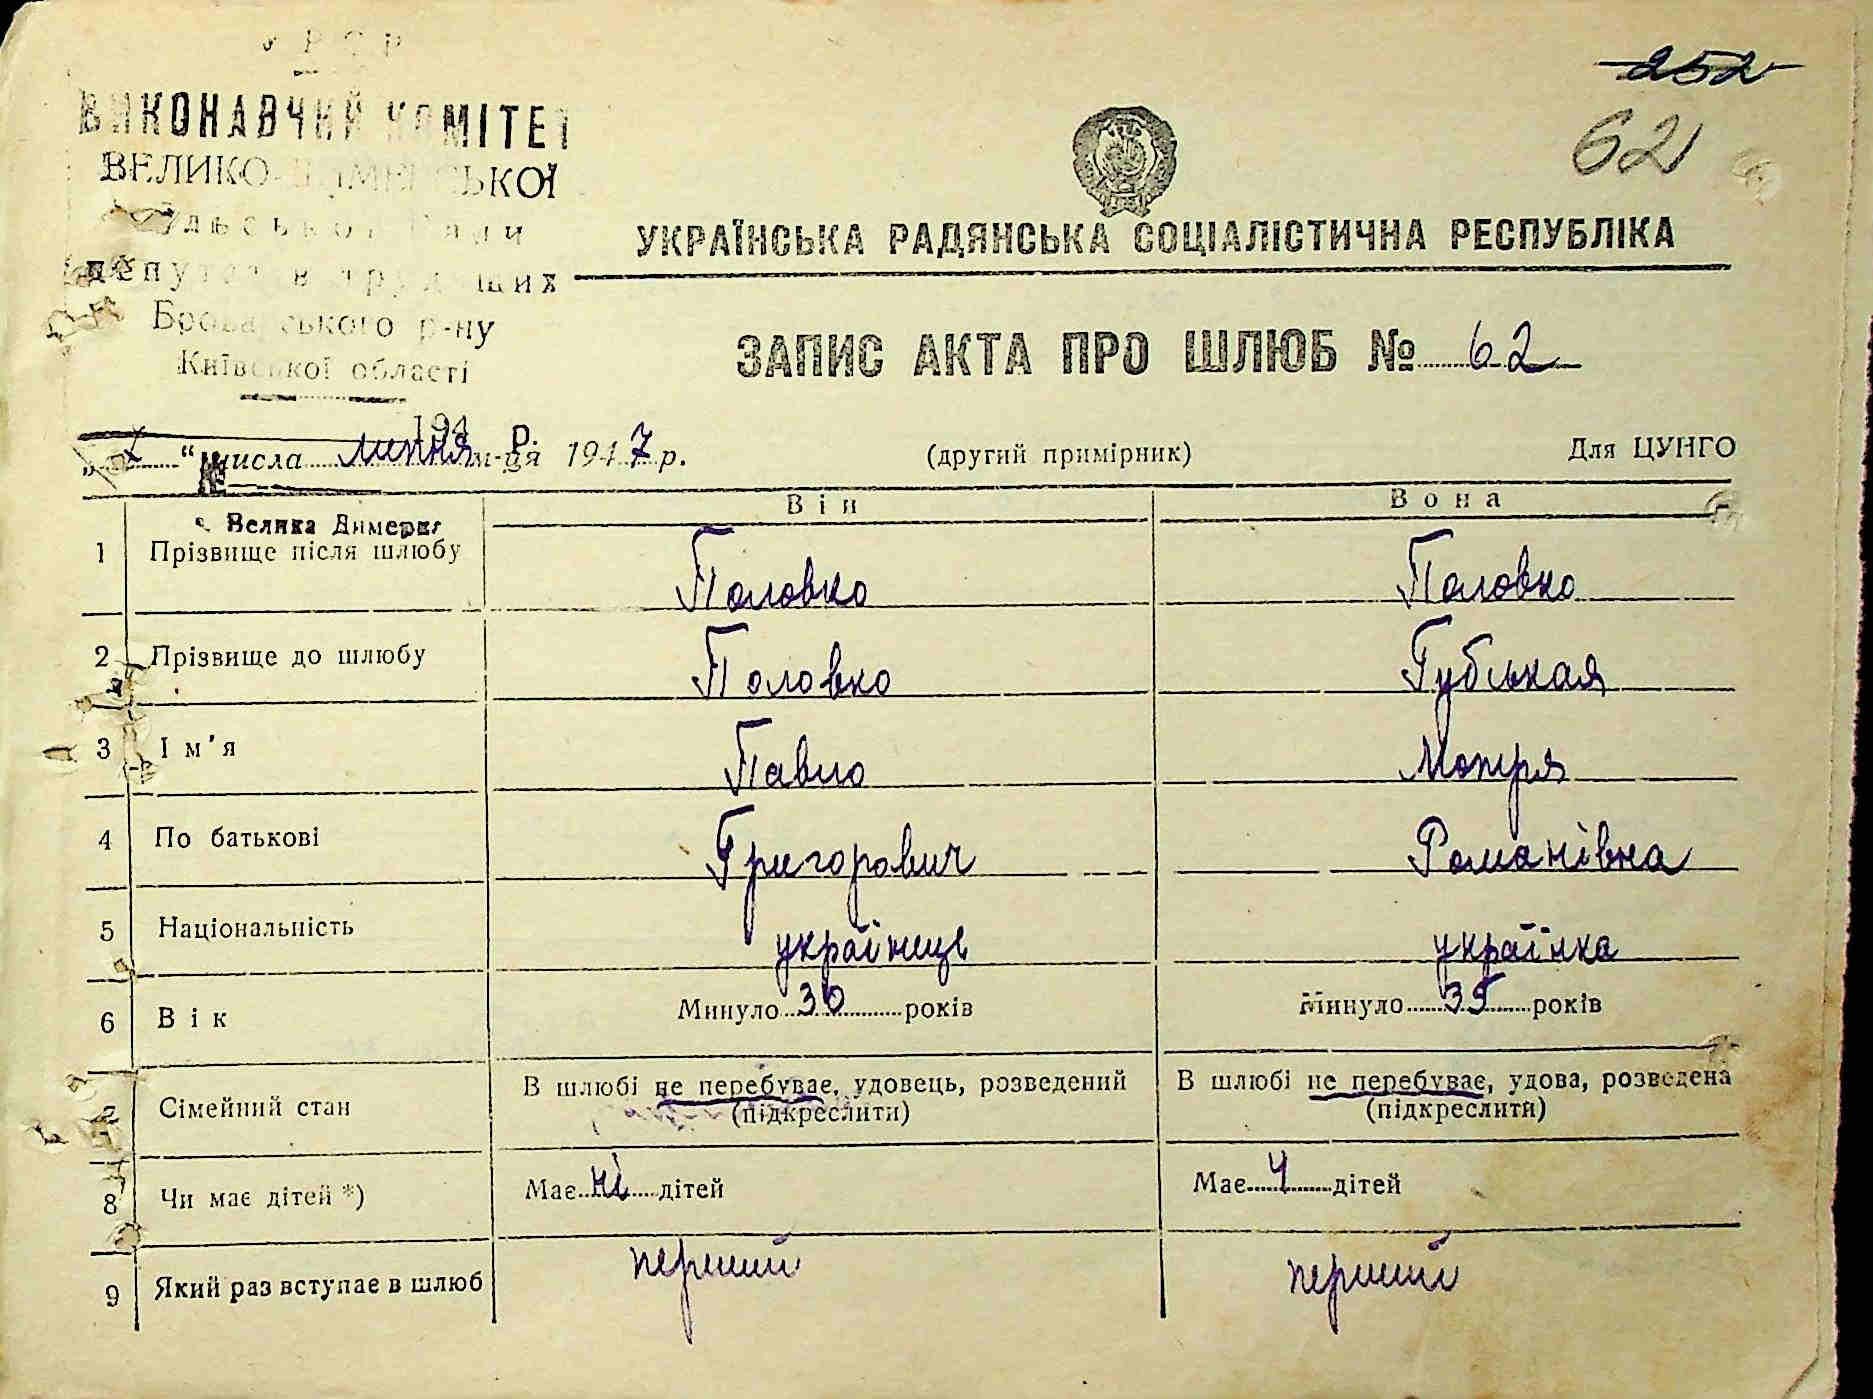 УРСР
ВИКОНАВЧИЙ КОМІТЕТ
ВЕЛИКО-ДИМЕРСЬКОЇ
сільської Ради
депутатів трудящих
Броварського р-ну
Київської області
194 р.
№
с. Велика Димерка
252
62
УКРАЇНСЬКА РАДЯНСЬКА СОЦІАЛІСТИЧНА РЕСПУБЛІКА
ЗАПИС АКТА ПРО ШЛЮБ № 62
" " числа липня м-ця 1947 р. (другий примірник) Для ЦУНГО
Він Вона
1 Прізвище після шлюбу Половко Половко
2 Прізвище до шлюбу Половко Губськая
3 Ім'я Павло Мотря
4 По батькові Григорович Романівна
5 Національність українець українка
6 Вік Минуло 30 років Минуло 35 років
7 Сімейний стан В шлюбі не перебуває, удовець, розведений В шлюбі не перебуває, удова, розведена
(підкреслити) (підкреслити)
8 Чи має дітей *) Має ні дітей Має 4 дітей
9 Який раз вступає в шлюб перший перший